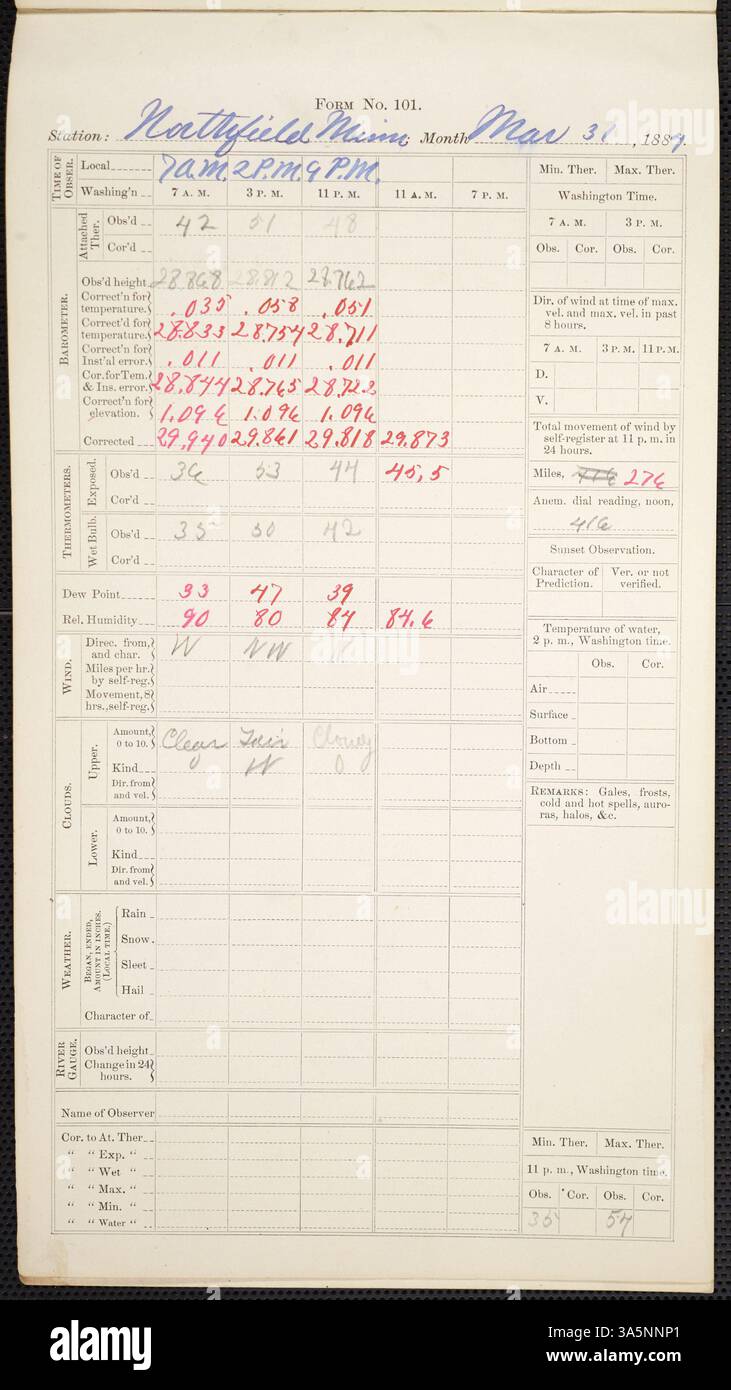 FORM No. 101.
Station: Northfield Minn Month Mar 31, 1889.
TIME OF OBSER.
Local 7 a.m. 2 P.M. 9 P.M.
Washing'n 7 A. M. 3 P. M. 11 P. M. 11 A. M. 7 P. M.
BAROMETER.
Attached Ther.
Obs'd 42 51 48
Cor'd
Obs'd height 28.868 28.812 28.762
Correct'n for temperature. .035 .058 .051
Correct'd for temperature. 28.833 28.754 28.711
Correct'n for Inst'al error. .011 .011 .011
Cor. for Tem. & Ins. error. 28.844 28.765 28.722
Correct'n for elevation. 1.096 1.096 1.096
Corrected 29.940 29.861 29.818 29.873
THERMOMETERS.
Exposed.
Obs'd 36 53 44 45,5
Cor'd
Wet Bulb.
Obs'd 35 50 42
Cor'd
Dew Point 33 47 39
Rel. Humidity 90 80 84 84.6
WIND.
Direc. from, and char. W NW
Miles per hr. by self-reg.
Movement, 8 hrs., self-reg.
CLOUDS.
Upper.
Amount, 0 to 10. Clear Fair Cloudy
Kind 0 W 0
Dir. from and vel.
Lower.
Amount, 0 to 10.
Kind
Dir. from and vel.
WEATHER.
BEGAN, ENDED, AMOUNT IN INCHES. (LOCAL TIME.)
Rain
Snow.
Sleet
Hail
Character of
RIVER GAUGE.
Obs'd height
Change in 24 hours.
Name of Observer
Cor. to At. Ther.
" " Exp. "
" " Wet "
" " Max. "
" " Min. "
" " Water "
Min. Ther. Max. Ther.
Washington Time.
7 A. M. 3 P. M.
Obs. Cor. Obs. Cor.
Dir. of wind at time of max. vel. and max. vel. in past 8 hours.
7 A. M. 3 P. M. 11 P. M.
D.
V.
Total movement of wind by self-register at 11 p. m. in 24 hours.
Miles, 416 276
Anem. dial reading, noon,
416
Sunset Observation.
Character of Prediction. Ver. or not verified.
Temperature of water, 2 p. m., Washington time.
Obs. Cor.
Air
Surface
Bottom
Depth
REMARKS: Gales, frosts, cold and hot spells, auroras, halos, &c.
Min. Ther. Max. Ther.
11 p. m., Washington time.
Obs. Cor. Obs. Cor.
35 57
alamy
alamy
Image ID: 3A5NNP1
www.alamy.com